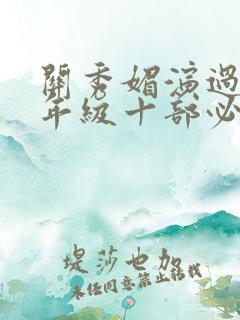 關秀媚演過
年級十部必
堤莎也加
未任同意禁止轉載